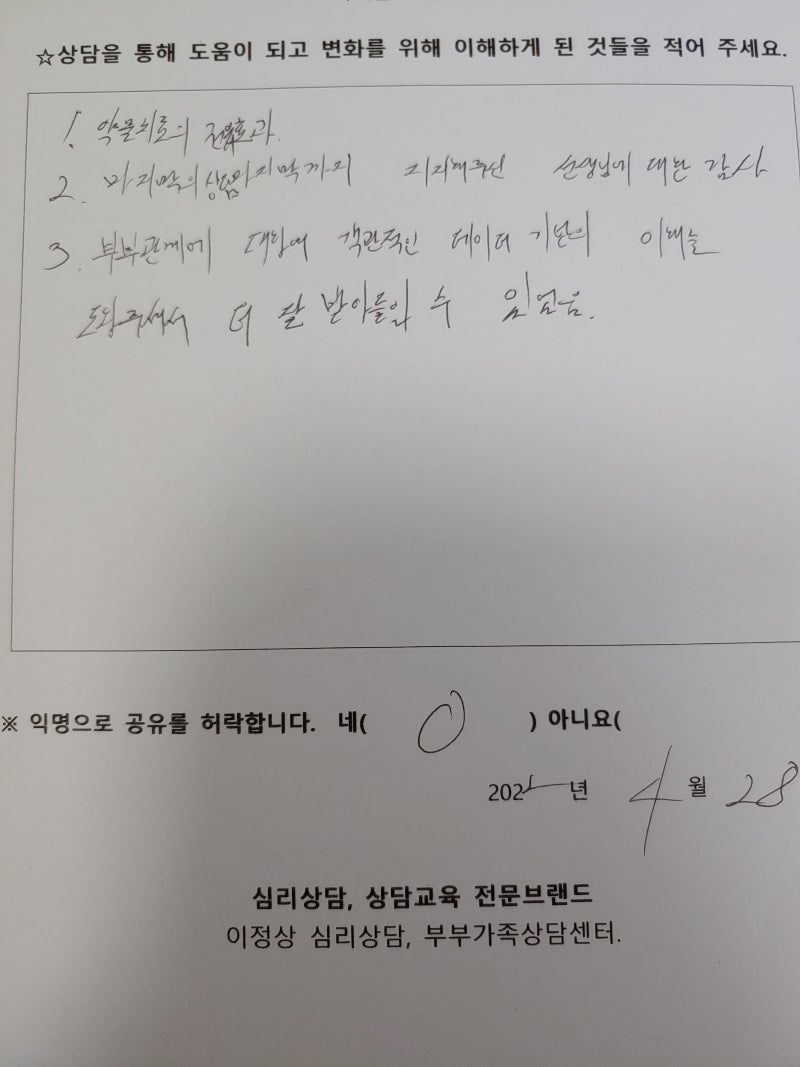 ☆상담을 통해 도움이 되고 변화를 위해 이해하게 된 것들을 적어 주세요.
1. 약물치료의
2. 마지막의 지지해주신 선생님에 대한 감사
3. 부부관계에 대하여 객관적인 데이터 기반의 이해를
도와주셔서 더 잘 받아들일 수 있었음.
※ 익명으로 공유를 허락합니다. 네( O ) 아니요(
202 년 4 월 28
심리상담, 상담교육 전문브랜드
이정상 심리상담, 부부가족상담센터.